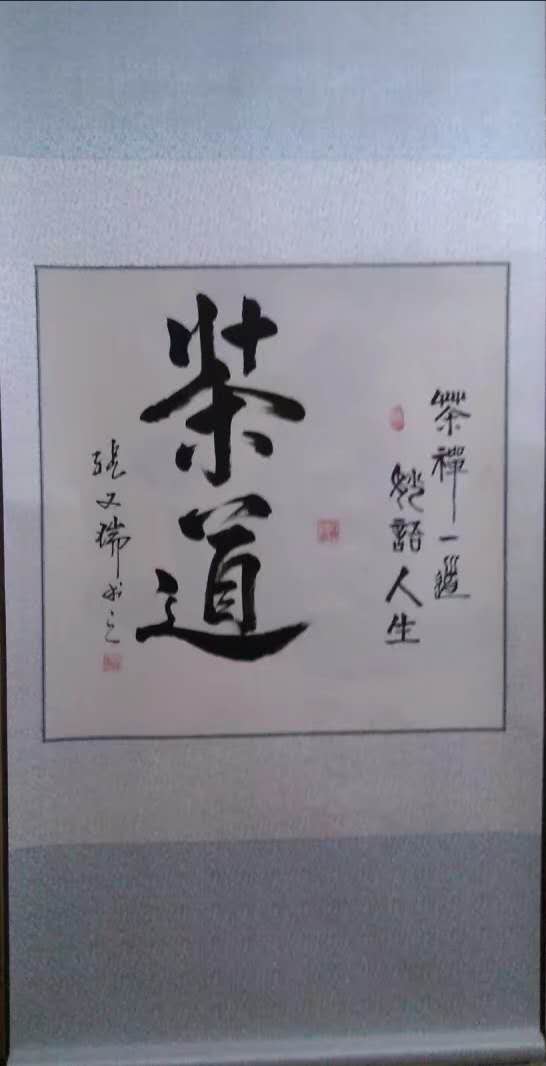 茶禪一道
妙語人生
茶道
張又瑞书之